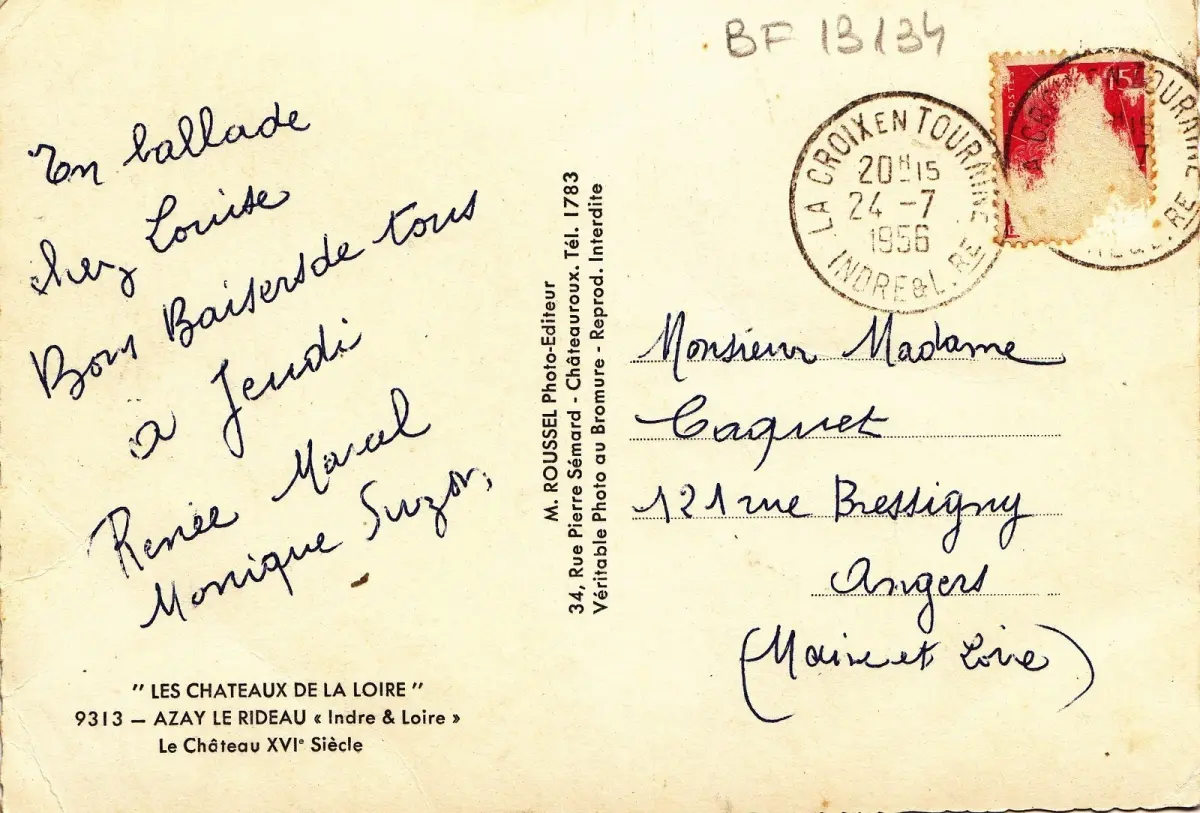 BF 13134
En ballade
chez Louise
Bons Baisers de tous
a Jeudi
Renée Marcel
Monique Suzon,
" LES CHATEAUX DE LA LOIRE "
9313 — AZAY LE RIDEAU « Indre & Loire »
Le Château XVIe Siècle
M. ROUSSEL Photo-Editeur
34, Rue Pierre Sémard - Châteauroux. Tél. 1783
Véritable Photo au Bromure - Reprod. Interdite
LA CROIX EN TOURAINE
20H15
24 -7
1956
INDRE & L. RE
15
Monsieur Madame
Caquet
121 rue Bressigny
Angers
(Maine et Loire)